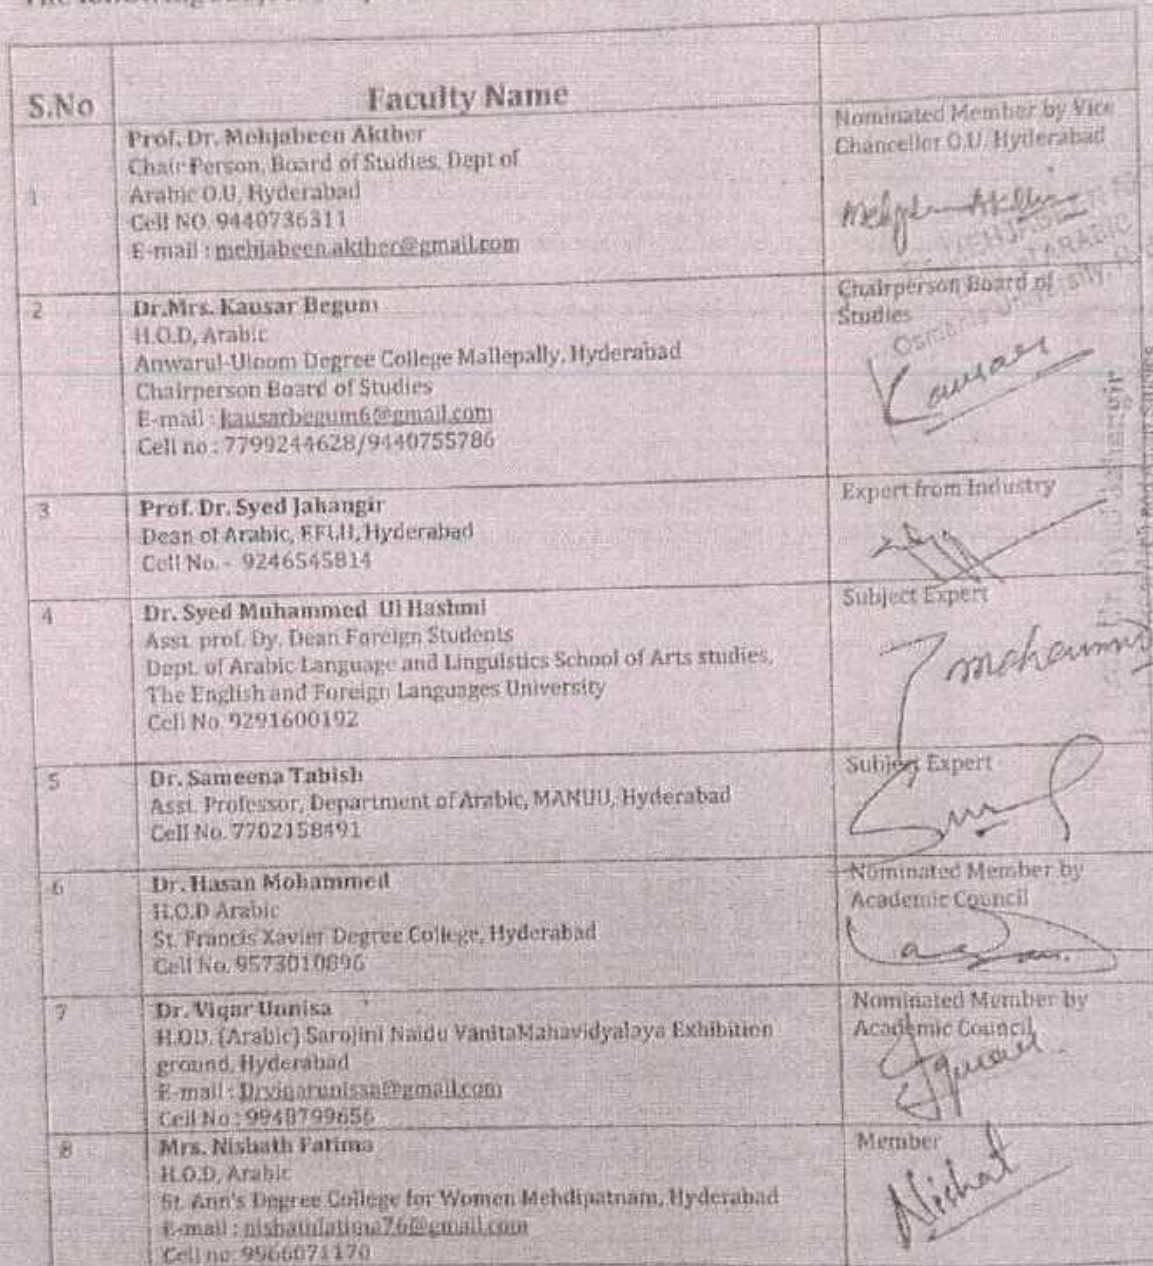 S.No
Faculty Name
1
Prof. Dr. Mehjabeen Akther
Chair Person, Board of Studies, Dept of
Arabic O.U, Hyderabad
Cell NO. 9440736311
E-mail : mehjabeen.akther@gmail.com
Nominated Member by Vice
Chancellor O.U. Hyderabad
ARABIC
2
Dr.Mrs. Kausar Begum
H.O.D, Arabic
Anwarul-Uloom Degree College Mallepally, Hyderabad
Chairperson Board of Studies
E-mail : kausarbegum6@gmail.com
Cell no : 7799244628/9440755786
Chairperson Board of
Studies
Kausar
3
Prof. Dr. Syed Jahangir
Dean of Arabic, EFLU, Hyderabad
Cell No. - 9246545814
Expert from Industry
4
Dr. Syed Muhammed Ul Hashmi
Asst. prof. Dy. Dean Foreign Students
Dept. of Arabic Language and Linguistics School of Arts studies,
The English and Foreign Languages University
Cell No. 9291600192
Subject Expert
5
Dr. Sameena Tabish
Asst. Professor, Department of Arabic, MANUU, Hyderabad
Cell No. 7702158491
Subject Expert
6
Dr. Hasan Mohammed
H.O.D Arabic
St. Francis Xavier Degree College, Hyderabad
Cell No. 9573010896
Nominated Member by
Academic Council
7
Dr. Viqar Unnisa
H.OD. (Arabic) Sarojini Naidu VanitaMahavidyalaya Exhibition
ground, Hyderabad
E-mail : Drviqarunissa@gmail.com
Cell No : 9948799656
Nominated Member by
Academic Council
8
Mrs. Nishath Fatima
H.O.D, Arabic
St. Ann's Degree College for Women Mehdipatnam, Hyderabad
E-mail : nishathfatima76@gmail.com
Cell no: 9966071170
Member
Nishat